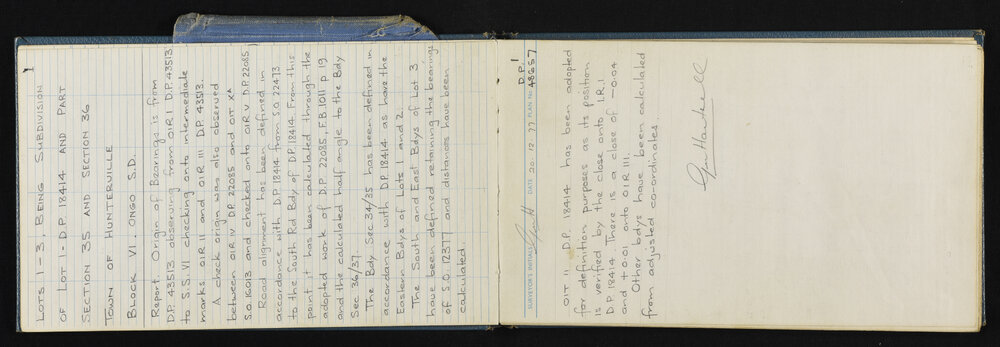 1
LOTS 1-3, BEING SUBDIVISION
OF LOT 1 - D.P. 18414 AND PART
SECTION 35 AND SECTION 36
TOWN OF HUNTERVILLE
BLOCK VI. ONGO S.D.
Report. Origin of Bearings is from
D.P. 43513 observing from OIR I D.P. 43513
to S.S. VI checking onto intermediate
marks OIR II and OIR III D.P. 43513.
A check origin was also observed
between OIR IV D.P. 22085 and OIT XA
S.O. 16013 and checked onto OIR V D.P. 22085
Road alignment has been defined in
accordance with D.P. 18414 from S.O. 22473
to the South Rd Bdy of D.P. 18414. From this
point it has been calculated through the
adopted work of D.P. 22085, F.B. 1011 p 19
and the calculated half angle to the Bdy
Sec 36/37.
The Bdy Sec 34/35 has been defined in
accordance with D.P. 18414 as have the
Eastern Bdys of Lots 1 and 2.
The South and East Bdys of Lot 3
have been defined retaining the bearings
of S.O. 12377 and distances have been
calculated.
1
D.P.
SURVEYOR'S INITIALS DATE 20.12.77 PLAN No. 48657
OIT II D.P. 18414 has been adopted
for definition purposes as its position
is verified by the close onto I.R. I
D.P. 18414. There is a close of -0.04
and +0.01 onto OIR III.
Other bdys have been calculated
from adjusted co-ordinates.